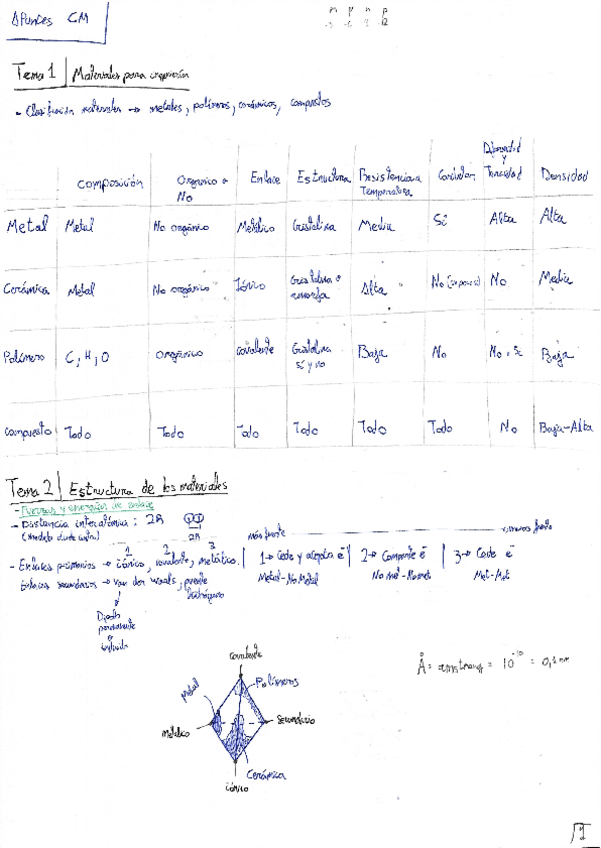 Apuntes CM
m μ n p
-3 -6 -9 -12
Tema 1 | Materiales para ingeniería
- Clasificación materiales → metales, polímeros, cerámicos, compuestos
Composición Orgánico o No Enlace Estructura Resistencia a Temperatura Conductor Ductilidad y Tenacidad Densidad
Metal Metal No orgánico Metálico Cristalina Media Sí Alta Alta
Cerámica Metal No orgánico Iónico Cristalina o amorfa Alta No No Media
Polímero C, H, O Orgánico Covalente Cristalina sí y no Baja No No, Sí Baja
Compuesto Todo Todo Todo Todo Todo Todo No Baja-Alta
Tema 2 | Estructura de los materiales
- Fuerzas y energías de enlace
- Distancia interatómica: 2R
2R
más fuerte menos fuerte
1 2 3
- Enlaces primarios → iónico, covalente, metálico. | 1→ Cede y acepta e⁻ | 2→ Comparte e⁻ | 3→ Cede e⁻
Metal-No Metal No met-No met Met-Met
Enlaces secundarios → van der waals, puente hidrógeno
Dipolo
permanente
o
inducido
Covalente
Metal Polímeros
Metálico Secundario
Cerámica
iónico
Å = amstrong = 10⁻¹⁰ = 0,1 nm
1